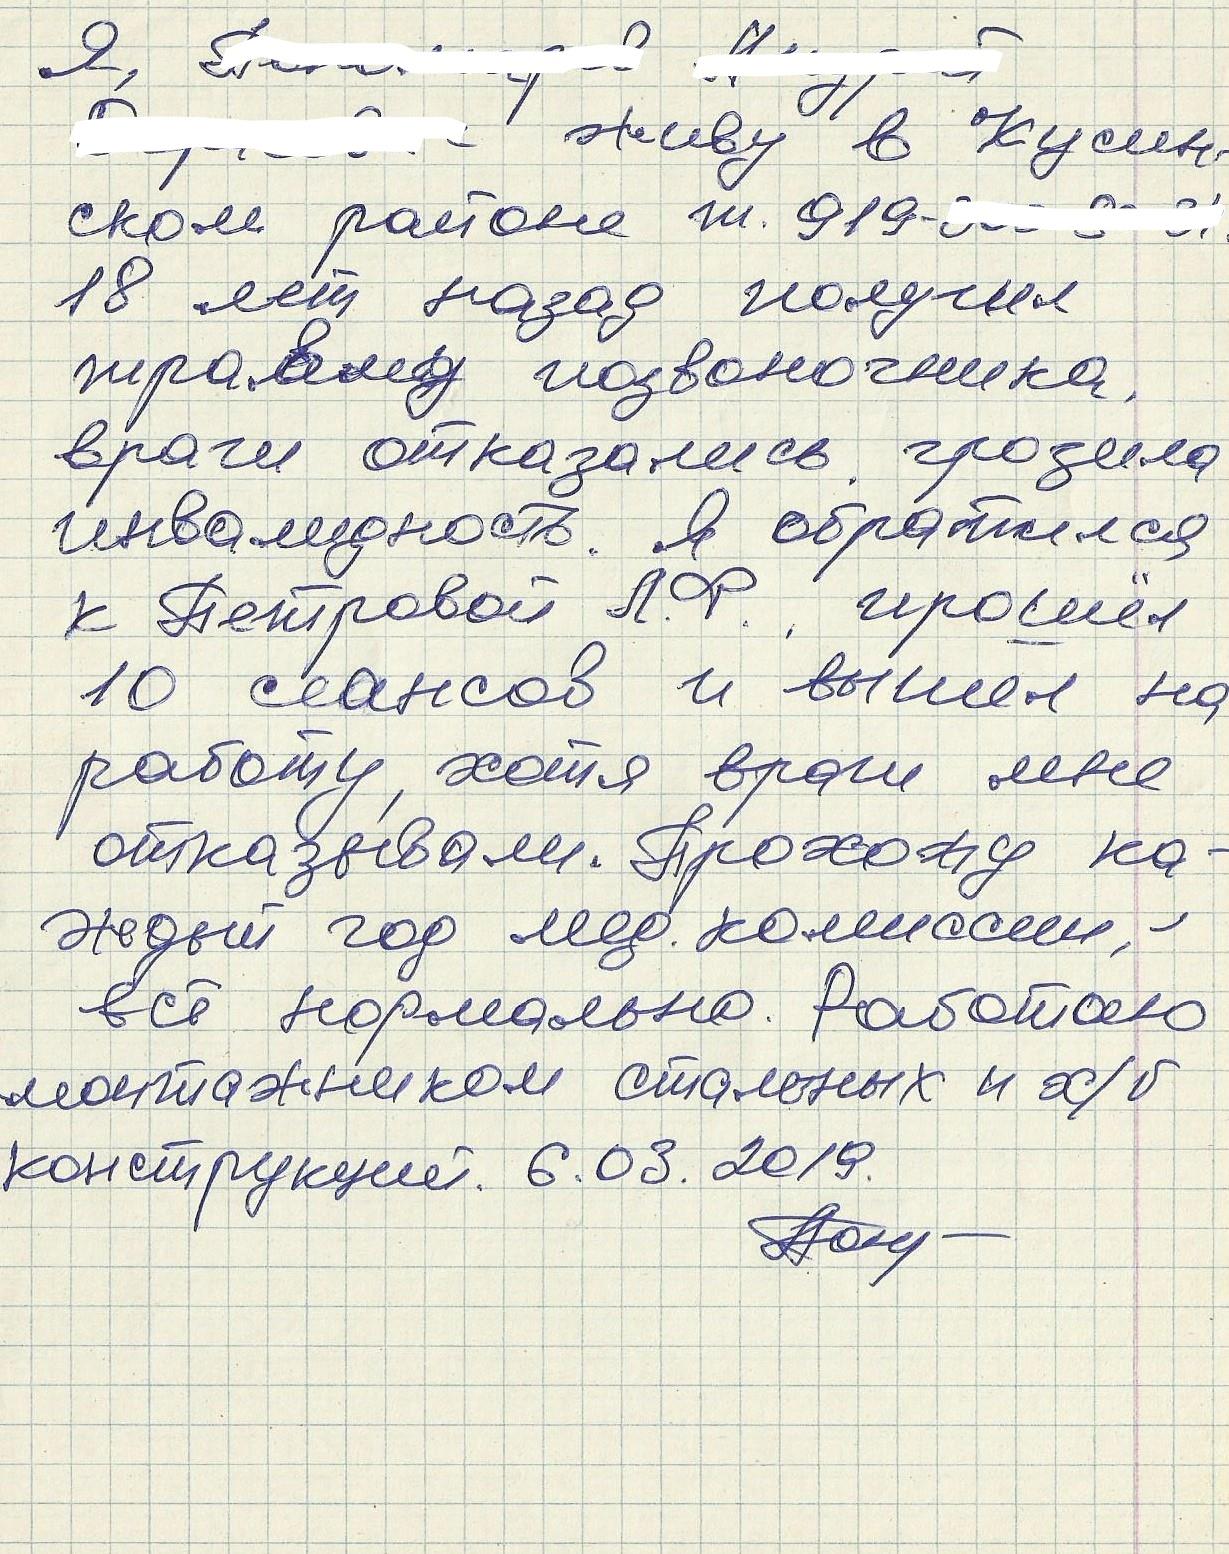 Я,
живу в Кусин-
ском районе т. 919-
18 лет назад получил
травму позвоночника,
врачи отказались, грозила
инвалидность. Я обратился
к Петровой Л.Ф., прошёл
10 сеансов и вышел на
работу, хотя врачи мне
отказывали. Прохожу ка-
ждый год мед. комиссии, -
всё нормально. Работаю
монтажником стальных и ж/б
конструкций. 6.03.2019.